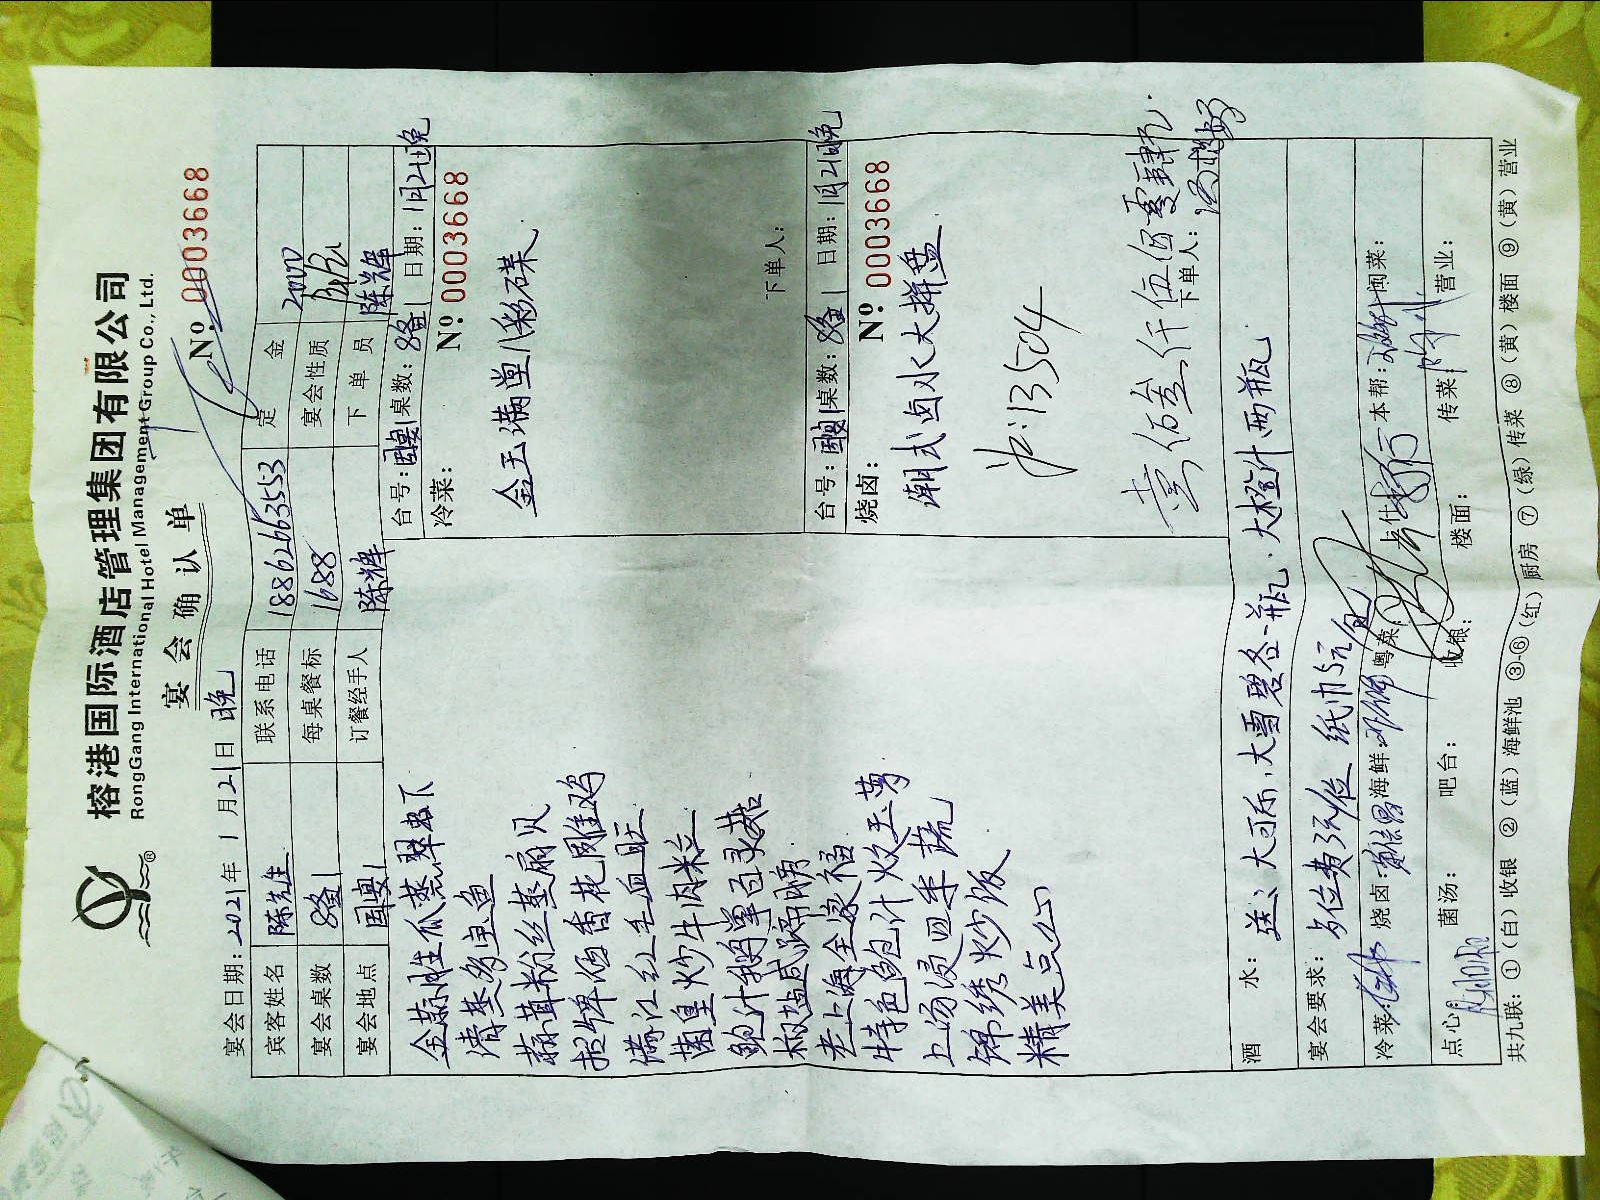 榕港国际酒店管理集团有限公司
RongGang International Hotel Management Group Co., Ltd.
宴会确认单
№ 0003668
宴会日期：2021年1月21日 晚
宾客姓名 陈先生 联系电话 18862663553 定金 2000
宴会桌数 8备1 每桌餐标 1688 宴会性质
宴会地点 国宴1 订餐经手人 陈辉 下单员 陈辉
金蒜胜瓜蒸翠虾
清蒸多宝鱼
蒜茸粉丝蒸扇贝
招牌酒香花雕鸡
满江红毛血旺
菌皇炒牛肉粒
鲍汁鹅掌百灵菇
椒盐咸蹄膀
老上海全家福
特色鲍汁炆玉茅
上汤浸四季蔬
锦绣炒饭
精美点心
台号：国宴1 桌数：8备1 日期：1月21日晚
冷菜： № 0003668
金玉满堂八彩碟
下单人：
台号：国宴1 桌数：8备1 日期：1月21日晚
烧卤： № 0003668
潮式卤水大拼盘
13504
壹 仟伍佰零肆元
下单人：
酒水： 送：大可乐，大雪碧各一瓶，大橙汁两瓶
宴会要求： 纸巾5元/包
冷菜： 烧卤： 海鲜： 粤菜： 点仕： 本帮： 闽菜：
点心： 菌汤： 吧台： 收银： 楼面： 传菜： 营业：
共九联：①（白）收银 ②（蓝）海鲜池 ③-⑥（红）厨房 ⑦（绿）传菜 ⑧（黄）楼面 ⑨（黄）营业